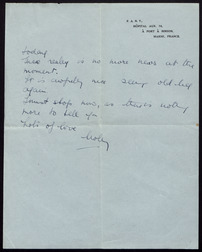 HÔPITAL AUX. 76,
MARNE, FRANCE.
today.
There really is no more news at the
moment.
It is nice seeing old
again
I must stop now, as there's nothing
more to tell you
Lots of love
Molly